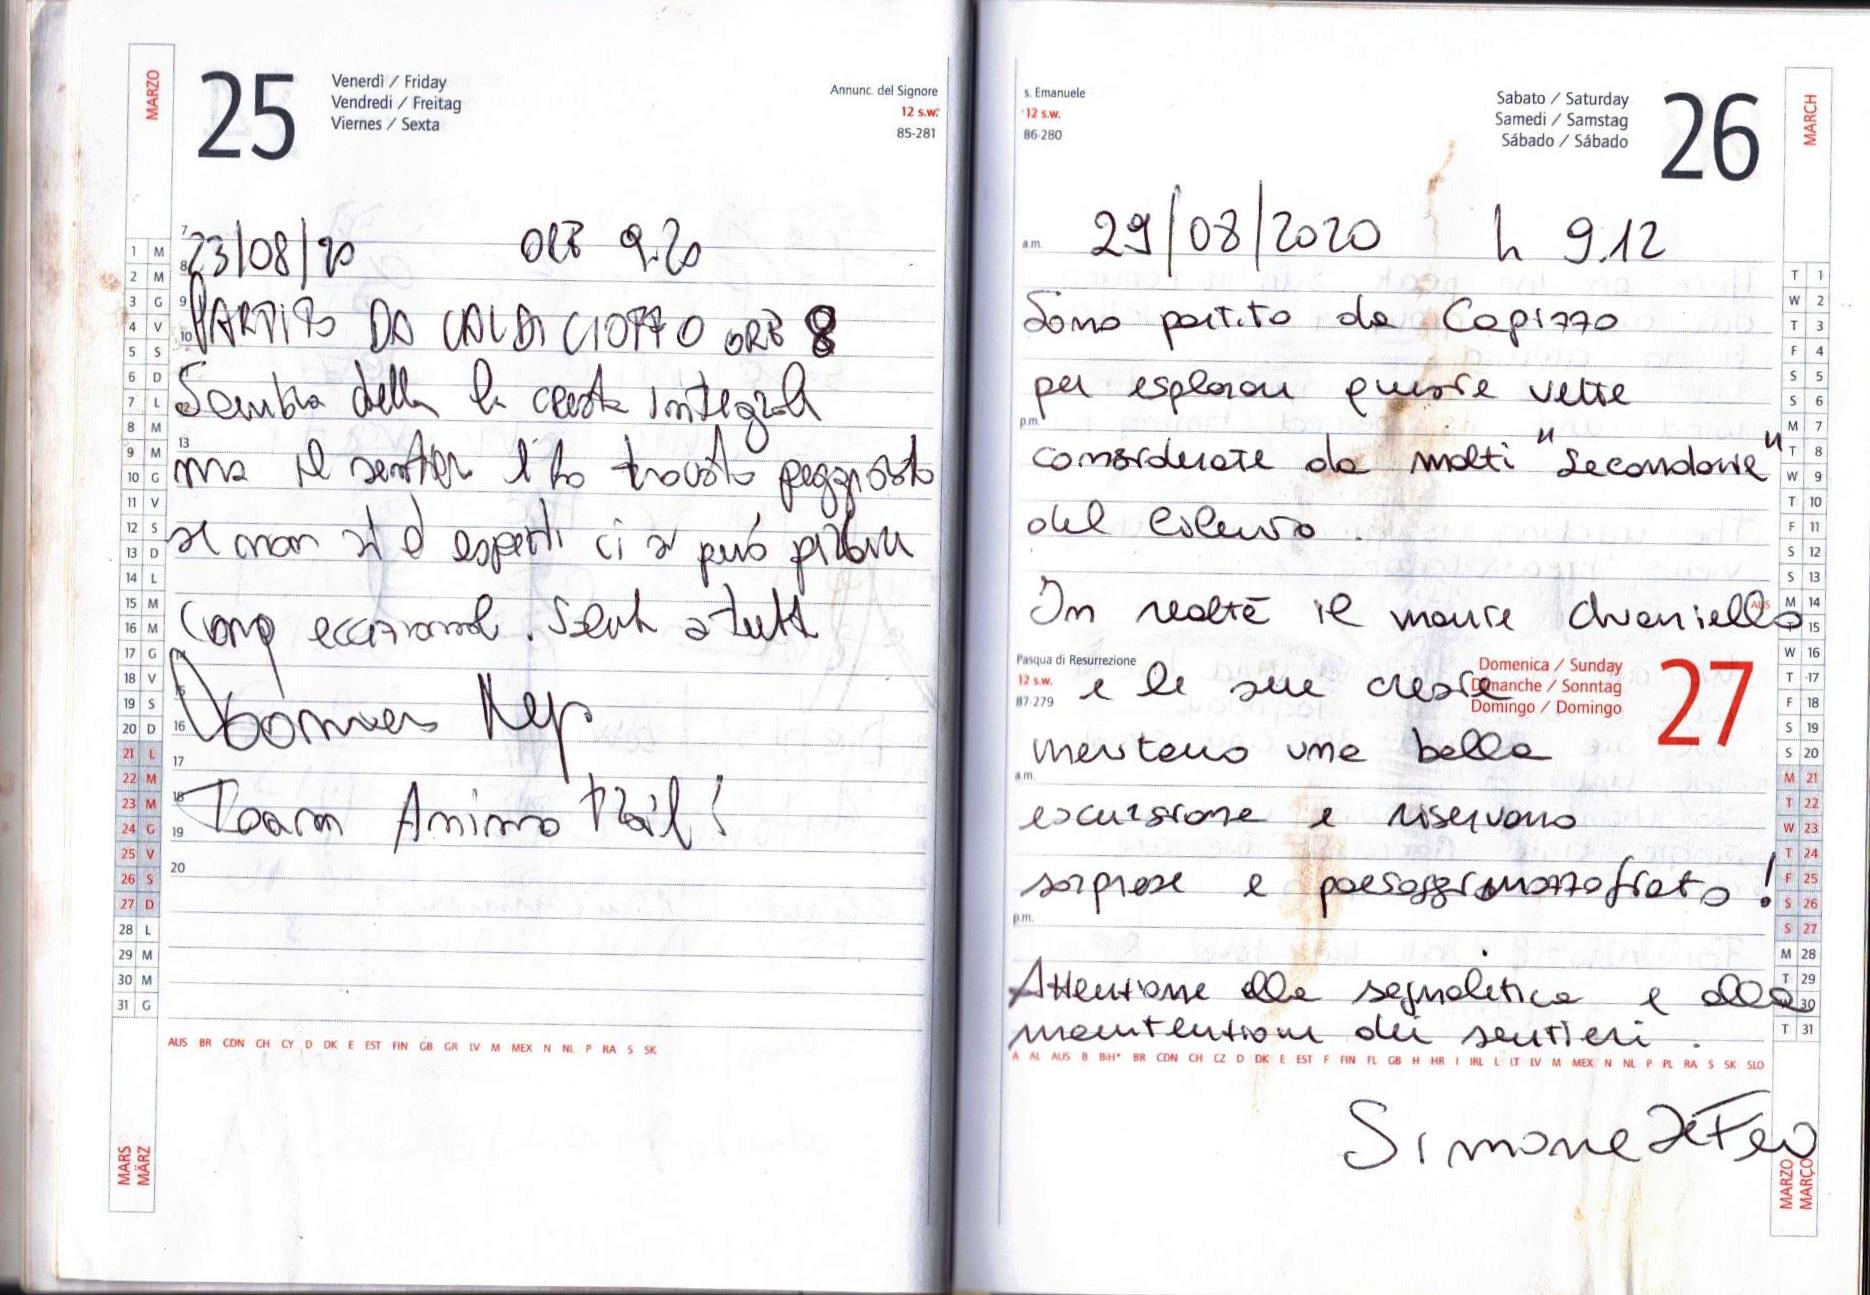 MARZO
25
Venerdì / Friday
Vendredi / Freitag
Viernes / Sexta
Annunc. del Signore
12 s.w.
85-281
23/08/20 ORE 9.20
PARTITO DA CALDI CIOTTO ORE 8
Sembra della la cresta integrale
ma il sentier l'ho trovato peggiorato
se non si è esperti ci si può
Comq eccezionale. Saluti a tutti
Team Animo Trail!
1 M
2 M
3 G
4 V
5 S
6 D
7 L
8 M
9 M
10 G
11 V
12 S
13 D
14 L
15 M
16 M
17 G
18 V
19 S
20 D
21 L
22 M
23 M
24 G
25 V
26 S
27 D
28 L
29 M
30 M
31 G
7
8
9
10
13
15
16
17
18
19
20
AUS BR CDN CH CY D DK E EST FIN GB GR LV M MEX N NL P RA S SK
MARS
MÄRZ
s. Emanuele
12 s.w.
86-280
Sabato / Saturday
Samedi / Samstag
Sábado / Sábado
26
MARCH
29/08/2020 h 9.12
a.m.
Sono partito da Capizzo
per esplorare queste vette
p.m.
considerate da molti "secondarie"
del Cilento.
In realtà il monte Chianiello
Pasqua di Resurrezione
12 s.w.
87-279
Domenica / Sunday
Dimanche / Sonntag
Domingo / Domingo
27
e le sue creste
meritano una bella
a.m.
escursione e riservano
sorprese e paesaggi mozzafiato!
p.m.
Attenzione alla segnaletica e alla
manutenzione dei sentieri.
A AL AUS B BiH* BR CDN CH CZ D DK E EST F FIN FL GB H HR I IRL L LT LV M MEX N NL P PL RA S SK SLO
Simone De Feo
T 1
W 2
T 3
F 4
S 5
S 6
M 7
T 8
W 9
T 10
F 11
S 12
S 13
AUS M 14
15
W 16
T 17
F 18
S 19
S 20
M 21
T 22
W 23
T 24
F 25
S 26
S 27
M 28
T 29
30
T 31
MARZO
MARÇO